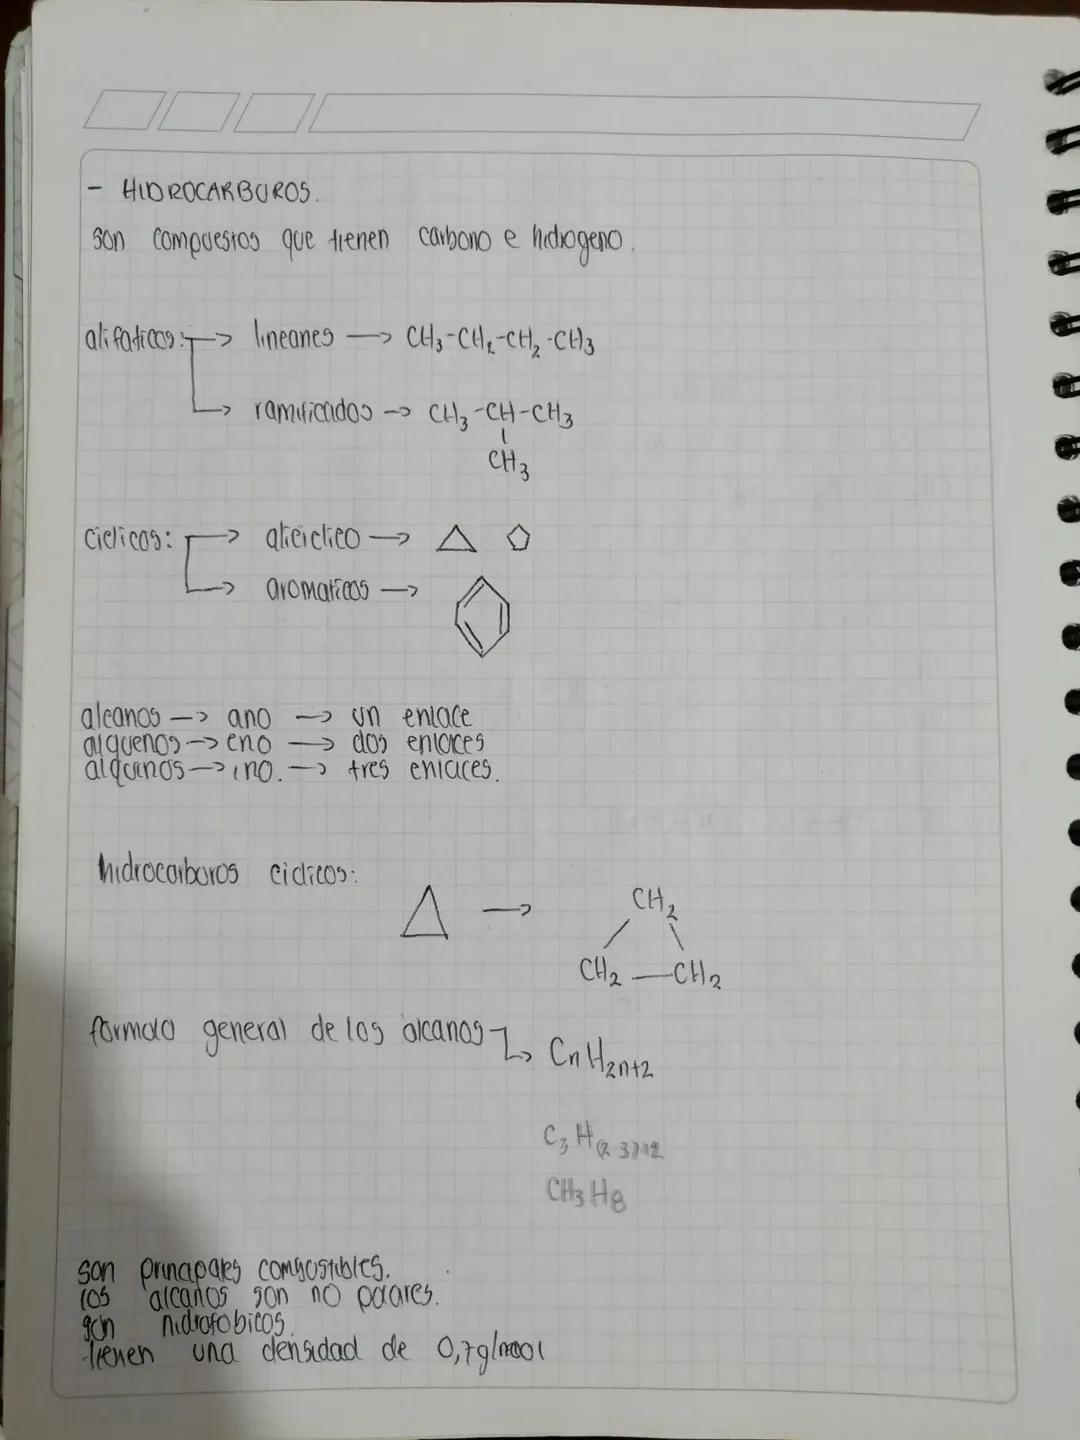 - HIDROCARBUROS.
son compuestos que tienen carbono e hidrogeno.
alifaticos: → lineanes → CH₃-CH₂-CH₂-CH₃
→ ramificados → CH₃-CH-CH₃
CH₃
ciclicos: → aliciclico →
→ aromaticos →
alcanos → ano → un enlace
alquenos → eno → dos enlaces
alquinos → ino. → tres enlaces.
hidrocarburos ciclicos:
→ CH₂
CH₂ — CH₂
formula general de los alcanos → CnH₂n+2
C₃H(2·3)+2
CH₃H₈
son principales combustibles.
los alcanos son no polares.
son hidrofobicos.
tienen una densidad de 0,7g/